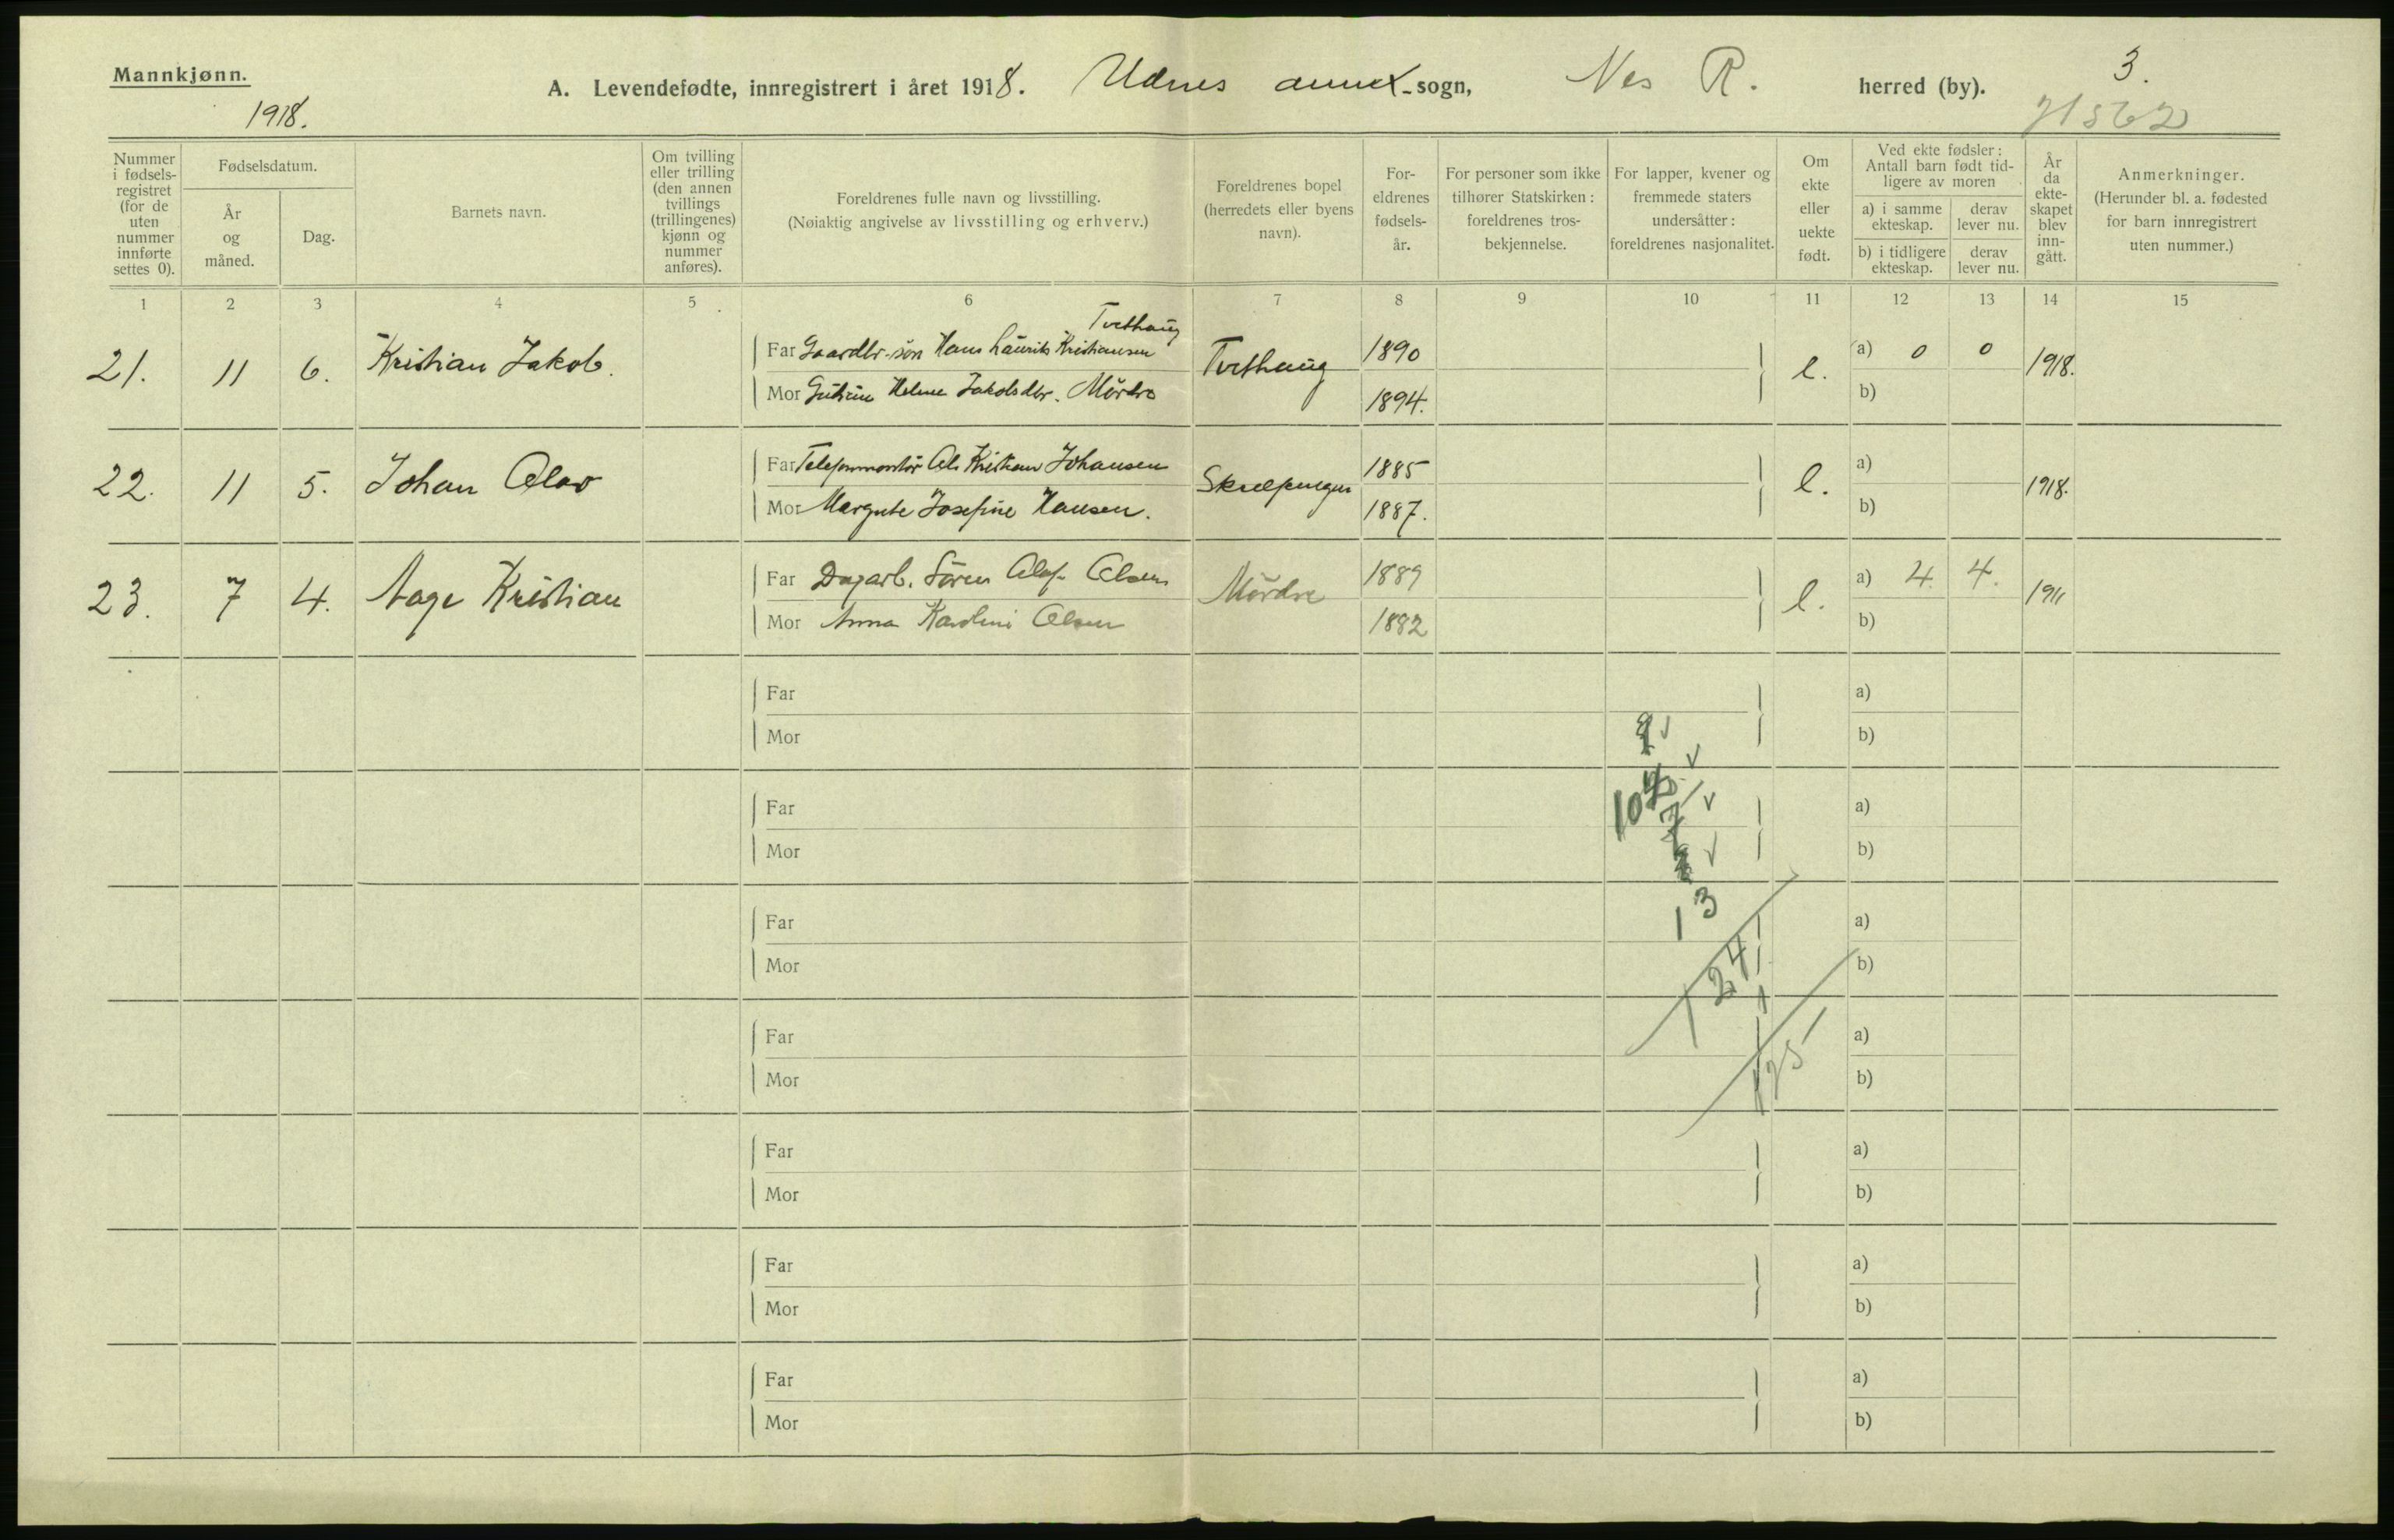 Mannkjønn.
1918.
A. Levendefødte, innregistrert i året 1918. Udnes annex-sogn, Nes R. herred (by). 3.
21562
Nummer i fødsels-registret (for de uten nummer innførte settes 0).
Fødselsdatum.
År og måned.
Dag.
Barnets navn.
Om tvilling eller trilling (den annen tvillings (trillingenes) kjønn og nummer anføres).
Foreldrenes fulle navn og livsstilling.
(Nøiaktig angivelse av livsstilling og erhverv.)
Foreldrenes bopel (herredets eller byens navn).
For-eldrenes fødsels-år.
For personer som ikke tilhører Statskirken: foreldrenes tros-bekjennelse.
For lapper, kvener og fremmede staters undersåtter: foreldrenes nasjonalitet.
Om ekte eller uekte født.
Ved ekte fødsler: Antall barn født tid-ligere av moren
a) i samme ekteskap.
derav lever nu.
b) i tidligere ekteskap.
derav lever nu.
År da ekte-skapet blev inn-gått.
Anmerkninger.
(Herunder bl. a. fødested for barn innregistrert uten nummer.)
1 2 3 4 5 6 7 8 9 10 11 12 13 14 15
Tvethaug
21. 11 6. Kristian Jakob. Far Gaardbr.søn Hans Laurits Kristiansen Tvethaug 1890 e. a) 0 0 1918.
Mor Helene Jakobsdtr. Mørdre 1894. b)
22. 11 5. Johan Olav Far Telefonmontør Ole Kristian Johansen 1885 e. a) 1918.
Mor Margrete Josefine Hansen. 1887. b)
23. 7 4. Aage Kristian Far Dagarb. Søren Olaf Olsen Mørdre 1889 e. a) 4. 4. 1911
Mor Anna Karoline Olsen 1882 b)
Far a)
Mor b)
Far a)
Mor b)
Far a)
13
Mor b)
124
Far a)
125
Mor b)
Far a)
Mor b)
Far a)
Mor b)
Far a)
Mor b)